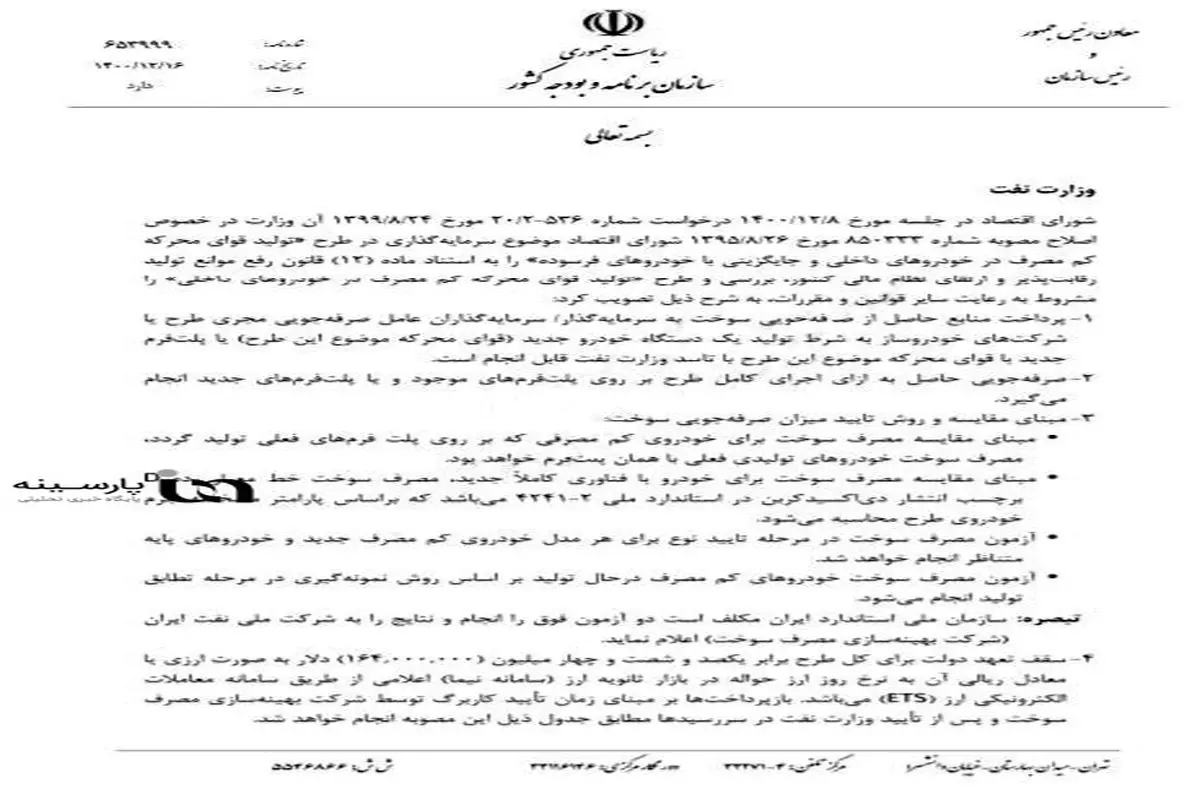 معاون رئیس جمهور
و
رئیس سازمان
ریاست جمهوری
سازمان برنامه و بودجه کشور
شماره نامه: ۶۵۳۹۹۹
تاریخ نامه: ۱۴۰۰/۱۲/۱۶
پیوست: دارد
بسمه تعالی
وزارت نفت
شورای اقتصاد در جلسه مورخ ۱۴۰۰/۱۲/۸ درخواست شماره ۵۳۶-۲۰/۲ مورخ ۱۳۹۹/۸/۲۴ آن وزارت در خصوص
اصلاح مصوبه شماره ۸۵۰۳۳۳ مورخ ۱۳۹۵/۸/۲۶ شورای اقتصاد موضوع سرمایه‌گذاری در طرح «تولید قوای محرکه
کم مصرف در خودروهای داخلی و جایگزینی با خودروهای فرسوده» را به استناد ماده (۱۲) قانون رفع موانع تولید
رقابت‌پذیر و ارتقای نظام مالی کشور، بررسی و طرح «تولید قوای محرکه کم مصرف در خودروهای داخلی» را
مشروط به رعایت سایر قوانین و مقررات، به شرح ذیل تصویب کرد:
۱- پرداخت منابع حاصل از صرفه‌جویی سوخت به سرمایه‌گذار/ سرمایه‌گذاران عامل صرفه‌جویی مجری طرح یا
شرکت‌های خودروساز به شرط تولید یک دستگاه خودرو جدید (قوای محرکه موضوع این طرح) یا پلت‌فرم
جدید با قوای محرکه موضوع این طرح با تایید وزارت نفت قابل انجام است.
۲- صرفه‌جویی حاصل به ازای اجرای کامل طرح بر روی پلت‌فرم‌های موجود و یا پلت‌فرم‌های جدید انجام
می‌گیرد.
۳- مبنای مقایسه و روش تایید میزان صرفه‌جویی سوخت:
• مبنای مقایسه مصرف سوخت برای خودروی کم مصرفی که بر روی پلت فرم‌های فعلی تولید گردد،
مصرف سوخت خودروهای تولیدی فعلی با همان پلت‌فرم خواهد بود.
• مبنای مقایسه مصرف سوخت برای خودرو با فناوری کاملاً جدید، مصرف سوخت خط D
برچسب انتشار دی‌اکسیدکربن در استاندارد ملی ۲-۴۲۴۱ می‌باشد که براساس پارامتر جرم
خودروی طرح محاسبه می‌شود.
• آزمون مصرف سوخت در مرحله تایید نوع برای هر مدل خودروی کم مصرف جدید و خودروهای پایه
متناظر انجام خواهد شد.
• آزمون مصرف سوخت خودروهای کم مصرف درحال تولید بر اساس روش نمونه‌گیری در مرحله تطابق
تولید انجام می‌شود.
تبصره: سازمان ملی استاندارد ایران مکلف است دو آزمون فوق را انجام و نتایج را به شرکت ملی نفت ایران
(شرکت بهینه‌سازی مصرف سوخت) اعلام نماید.
۴- سقف تعهد دولت برای کل طرح برابر یکصد و شصت و چهار میلیون (۱۶۴,۰۰۰,۰۰۰) دلار به صورت ارزی یا
معادل ریالی آن به نرخ روز ارز حواله در بازار ثانویه ارز (سامانه نیما) اعلامی از طریق سامانه معاملات
الکترونیکی ارز (ETS) می‌باشد. بازپرداخت‌ها بر مبنای زمان تأیید کاربرگ توسط شرکت بهینه‌سازی مصرف
سوخت و پس از تأیید وزارت نفت در سررسیدها مطابق جدول ذیل این مصوبه انجام خواهد شد.
پارسینه
پایگاه خبری تحلیلی
تهران-میدان بهارستان-خیابان دانشسرا مرکز تلفن: ۴-۳۳۲۷۱ دورنگار مرکزی: ش ش: ۵۵۴۶۸۶۶